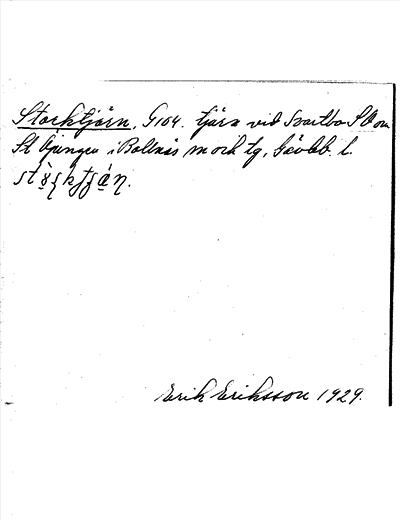 Stocktjärn, G104. tjärn vid Svartbo SO om
St Öjungen i Bollnäs m och tg, Gävleb. l.
Erik Eriksson 1929.